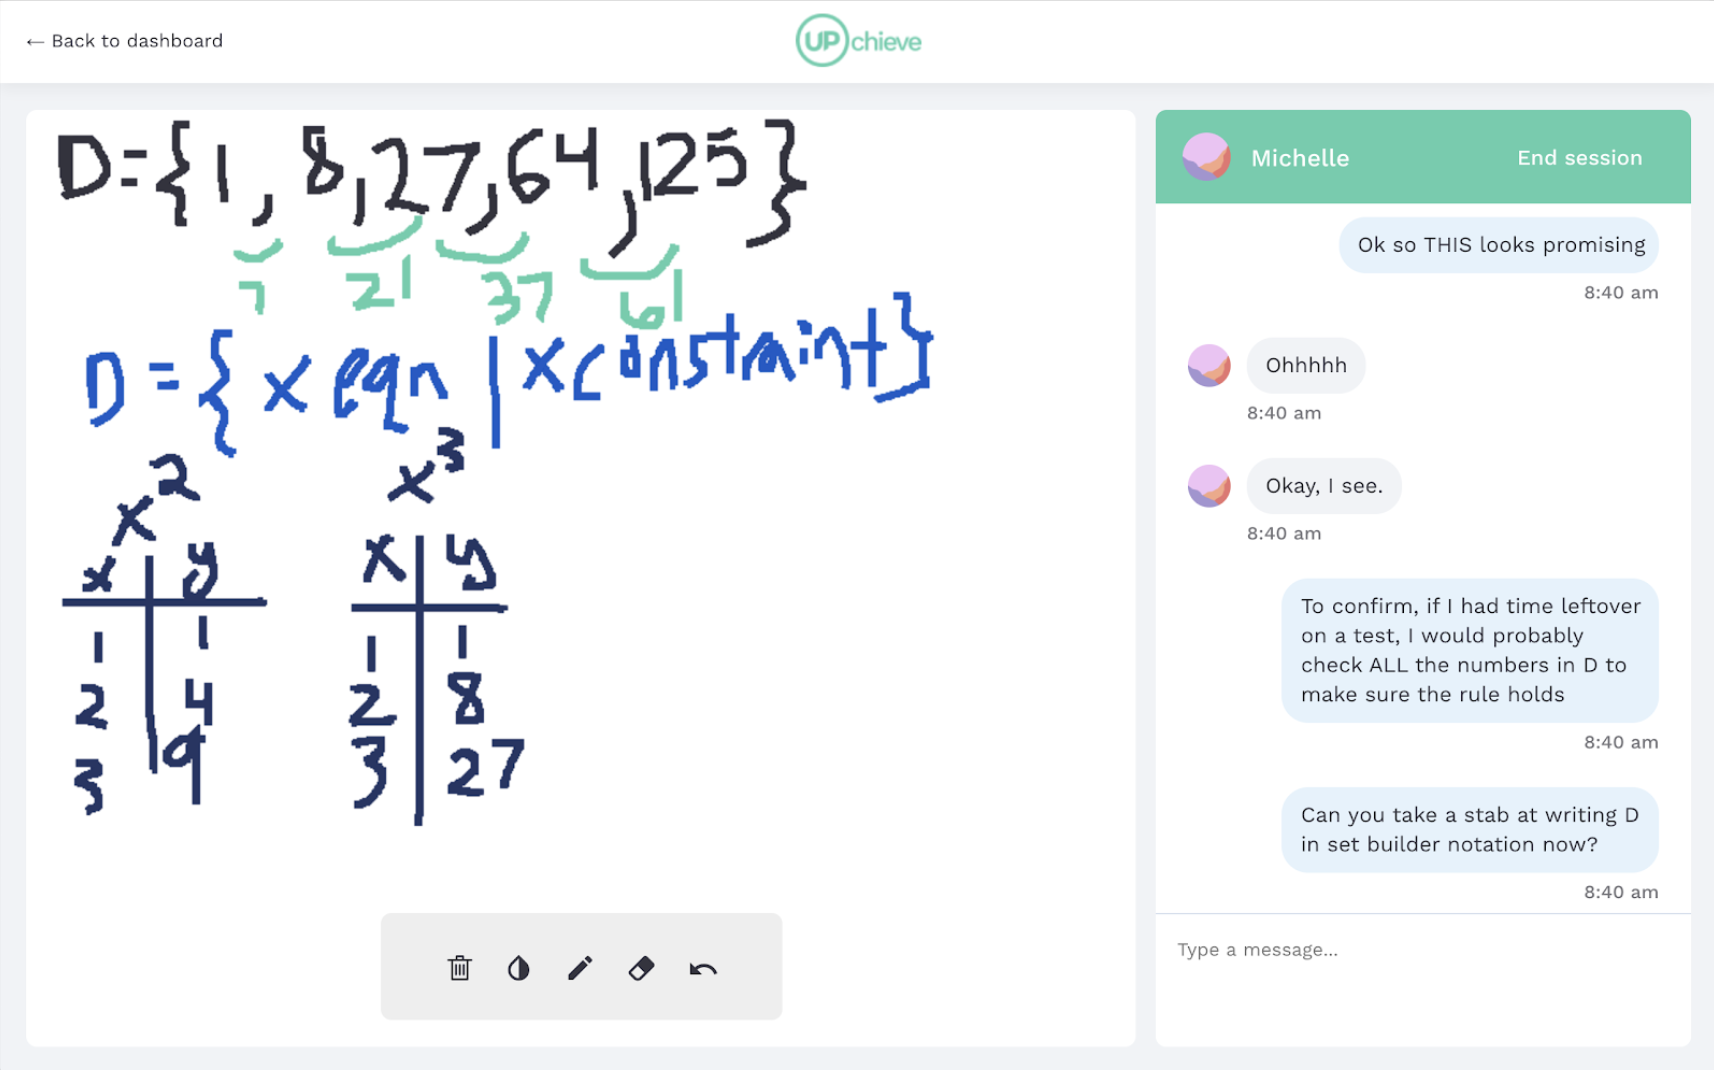 ← Back to dashboard
UPchieve
D={1, 8,27,64,125}
7 21 37 61
D={x eqn | x constraint}
x²
x y
1 1
2 4
3 9
x³
x y
1 1
2 8
3 27
Michelle End session
Ok so THIS looks promising
8:40 am
Ohhhhh
8:40 am
Okay, I see.
8:40 am
To confirm, if I had time leftover
on a test, I would probably
check ALL the numbers in D to
make sure the rule holds
8:40 am
Can you take a stab at writing D
in set builder notation now?
8:40 am
Type a message...